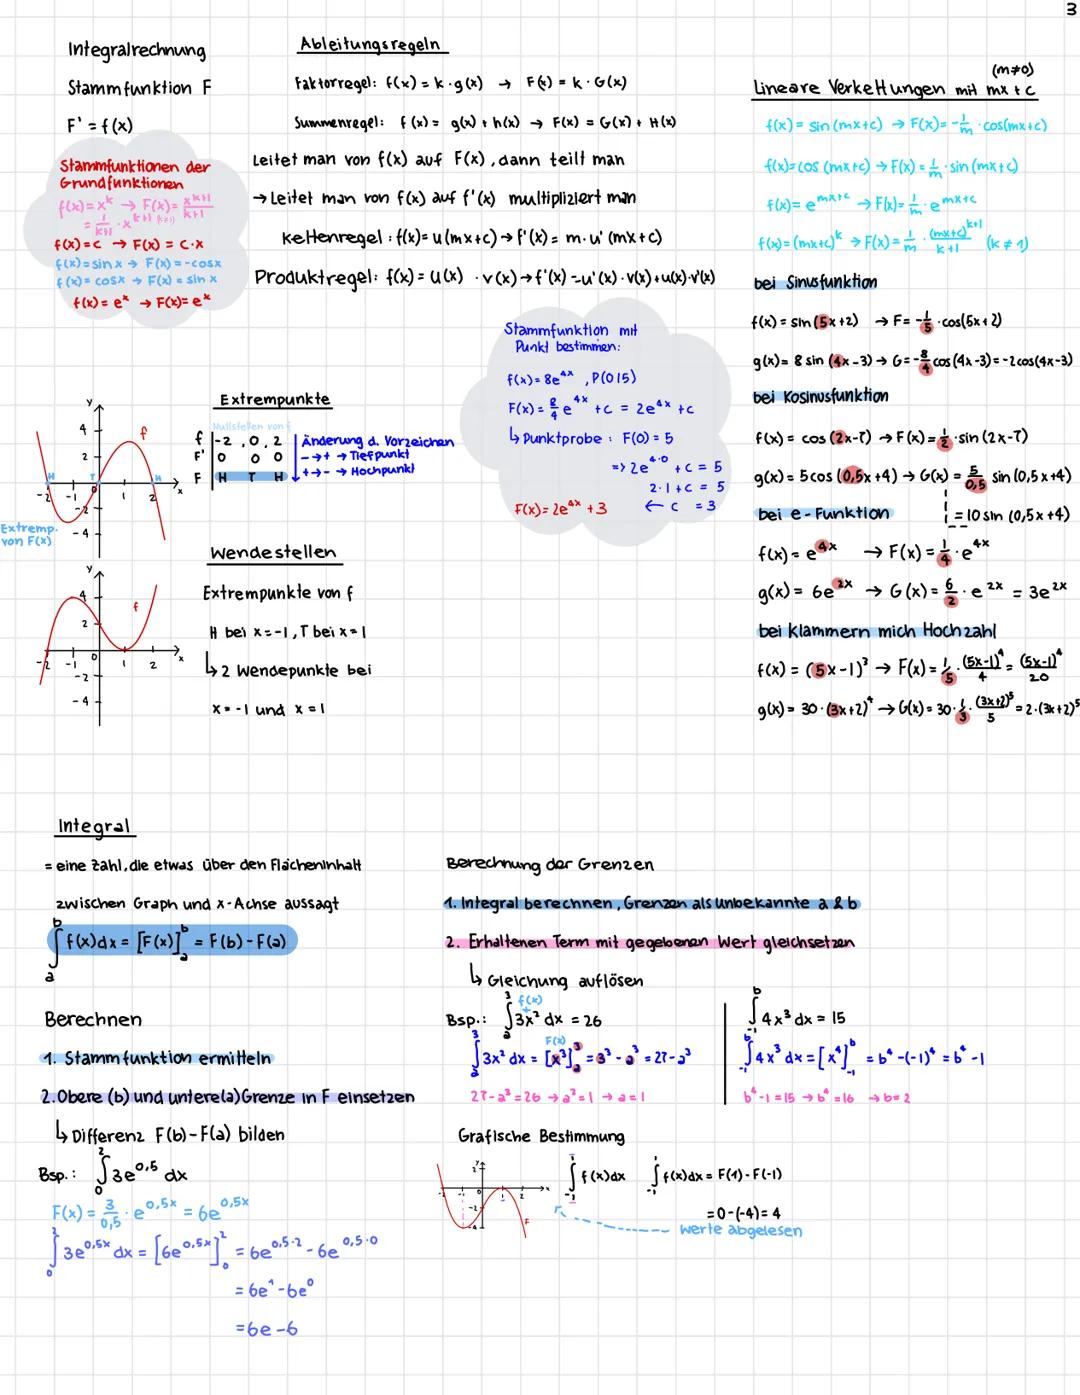 3
Integralrechnung
Stammfunktion F
F' = f(x)
Stammfunktionen der
Grundfunktionen
f(x)=x^k → F(x)= x^(k+1)/(k+1)
= 1/(k+1) · x^(k+1) (k≠1)
f(x)=c → F(x) = c·x
f(x)=sin x → F(x)=-cosx
f(x)= cosx → F(x) = sin x
f(x)= e^x → F(x)= e^x
Ableitungsregeln
Faktorregel: f(x) = k·g(x) → F(x) = k·G(x)
Summenregel: f(x) = g(x) + h(x) → F(x) = G(x) + H(x)
Leitet man von f(x) auf F(x), dann teilt man
→ Leitet man von f(x) auf f'(x) multipliziert man
Kettenregel: f(x)= u(mx+c) → f'(x) = m·u'(mx+c)
Produktregel: f(x) = u(x) · v(x) → f'(x) = u'(x)·v(x)+u(x)·v'(x)
(m≠0)
Lineare Verkettungen mit mx + c
f(x) = sin (mx+c) → F(x)= -1/m · cos(mx+c)
f(x)=cos (mx+c) → F(x) = 1/m · sin (mx+c)
f(x)= e^(mx+c) → F(x)= 1/m · e^(mx+c)
f(x)=(mx+c)^k → F(x)= 1/m · (mx+c)^(k+1)/(k+1) (k ≠ 1)
bei Sinusfunktion
f(x) = sin (5x+2) → F= -1/5 · cos(5x+2)
g(x)= 8 sin (4x-3) → G= -8/4 cos (4x-3)=-2cos(4x-3)
bei Kosinusfunktion
f(x) = cos (2x-7) → F(x)= 1/2 · sin (2x-7)
g(x) = 5cos (0,5x+4) → G(x) = 5/0,5 sin (0,5x+4)
= 10 sin (0,5x+4)
bei e-Funktion
f(x) = e^(4x) → F(x) = 1/4 · e^(4x)
g(x) = 6e^(2x) → G(x) = 6/2 · e^(2x) = 3e^(2x)
bei Klammern mich Hochzahl
f(x) = (5x-1)³ → F(x) = 1/5 · (5x-1)⁴/4 = (5x-1)⁴/20
g(x) = 30·(3x+2)⁴ → G(x) = 30· 1/3 · (3x+2)⁵/5 = 2·(3x+2)⁵
Stammfunktion mit
Punkt bestimmen:
f(x)= 8e^(4x) , P(0|5)
F(x) = 8/4 e^(4x) +c = 2e^(4x) +c
↳ Punktprobe: F(0) = 5
=> 2e^(4·0) + c = 5
2·1 + c = 5
← c = 3
F(x)= 2e^(4x) + 3
y
4
2
-2 -1 0 1 2 x
-2
-4
f
H T H
Extremp.
von F(x)
Extrempunkte
Nullstellen von f
f -2 , 0 , 2
F' 0 0 0
F H T H
Änderung d. Vorzeichen
-→+ → Tiefpunkt
+→- → Hochpunkt
y
4
2
-2 -1 0 1 2 x
-2
-4
f
Wendestellen
Extrempunkte von f
H bei x=-1, T bei x=1
↳ 2 Wendepunkte bei
x = -1 und x = 1
Integral
= eine Zahl, die etwas über den Flächeninhalt
zwischen Graph und x-Achse aussagt
∫_a^b f(x)dx = [F(x)]_a^b = F(b) - F(a)
Berechnen
1. Stammfunktion ermitteln
2. Obere (b) und untere(a) Grenze in F einsetzen
↳ Differenz F(b)-F(a) bilden
Bsp.: ∫_0^2 3e^(0,5) dx
F(x) = 3/0,5 · e^(0,5x) = 6e^(0,5x)
∫_0^2 3e^(0,5x) dx = [6e^(0,5x)]_0^2 = 6e^(0,5·2) - 6e^(0,5·0)
= 6e¹ - 6e⁰
= 6e - 6
Berechnung der Grenzen
1. Integral berechnen, Grenzen als unbekannte a & b
2. Erhaltenen Term mit gegebenen Wert gleichsetzen
↳ Gleichung auflösen
f(x)
Bsp.: ∫_a^3 3x² dx = 26
F(x)
∫_a^3 3x² dx = [x³]_a^3 = 3³ - a³ = 27-a³
27-a³ = 26 → a³ = 1 → a = 1
∫_-1^b 4x³ dx = 15
∫_-1^b 4x³ dx = [x⁴]_-1^b = b⁴-(-1)⁴ = b⁴-1
b⁴-1 = 15 → b⁴ = 16 → b= 2
Grafische Bestimmung
∫_-1^1 f(x)dx ∫_-1^1 f(x)dx = F(1)-F(-1)
= 0-(-4) = 4
werte abgelesen